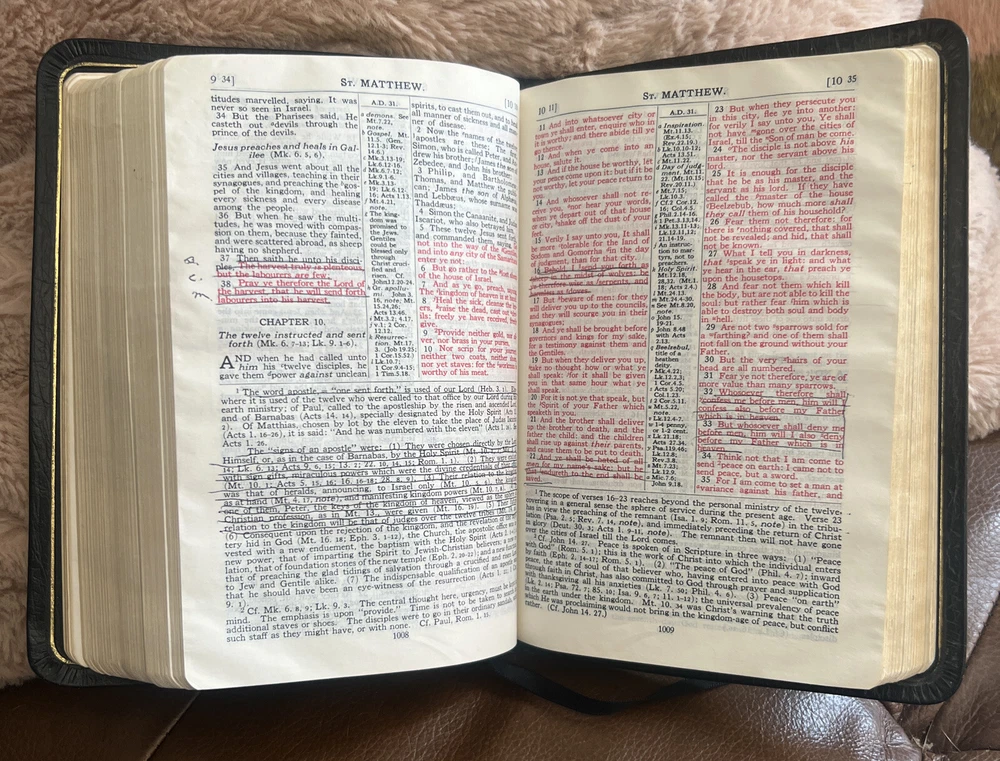 9 34]
ST. MATTHEW.
titudes marvelled, saying, It was
never so seen in Israel.
34 But the Pharisees said, He
casteth out devils through the
prince of the devils.
Jesus preaches and heals in Gal-
ilee (Mk. 6. 5, 6).
35 And Jesus went about all the
cities and villages, teaching in their
synagogues, and preaching the gos-
pel of the kingdom, and healing
every sickness and every disease
among the people.
36 But when he saw the multi-
tudes, he was moved with compas-
sion on them, because they fainted,
and were scattered abroad, as sheep
having no shepherd.
37 Then saith he unto his disci-
ples, The harvest truly is plenteous,
but the labourers are few;
38 Pray ye therefore the Lord of
the harvest, that he will send forth
labourers into his harvest.
CHAPTER 10.
The twelve instructed and sent
forth (Mk. 6. 7-13; Lk. 9. 1-6).
AND when he had called unto
him his twelve disciples, he
gave them power against unclean
A.D. 31.
demons. See
Mt.7.22,
note.
Gospel. Mt.
11.5. (Gen.
12.1-3; Rev.
14.6.)
Mk.3.13-19;
Lk.6.12-16.
Mk.6.7-12;
Lk.9.1.
Mk.3.13-
19; Lk.6.12-
16; Acts 1.13.
Mt.4.21,
note.
The king-
dom was
promised to
the Jews.
Gentiles
could be
blessed only
through
Christ cruci-
fied and
risen. Cf.
John12.20-24.
Gr. apollu-
mi. John 3.
16, note; Mt.
15.24,26;
Acts 13.46.
Mt.3.2; 4.17.
v.1; 2 Cor.
12.12.
Resurrec-
tion. Mt.17.
3. (Job 19.25;
1 Cor.15.52.)
Lk.10.7;
1 Cor.9.4-15;
1 Tim.5.18.
spirits, to cast them out, and to
all manner of sickness and all
ner of disease.
2 Now the names of the
apostles are these; The
Simon, who is called Peter, and
drew his brother; James the son
Zebedee, and John his brother;
3 Philip, and Barthol
Thomas, and Matthew the
can; James the son of Alphæ
and Lebbæus, whose surname
Thaddæus;
4 Simon the Canaanite, and
Iscariot, who also betrayed
5 These twelve Jesus sent
and commanded them, saying,
not into the way of the
and into any city of the Samaritans
enter ye not:
6 But go rather to the lost
of the house of Israel.
7 And as ye go, preach,
The kingdom of heaven is at
8 Heal the sick, cleanse the
ers, raise the dead, cast out
ils: freely ye have received,
give.
9 Provide neither gold, nor
ver, nor brass in your purses,
10 Nor scrip for your journey,
neither two coats, neither
nor yet staves: for the workman
worthy of his meat.
1 The word apostle, = "one sent forth," is used of our Lord (Heb. 3. 1).
where it is used of the twelve who were called to that office by our Lord during
earth ministry; of Paul, called to the apostleship by the risen and ascended
and of Barnabas (Acts 14. 14), specially designated by the Holy Spirit (Acts
2). Of Matthias, chosen by lot by the eleven to take the place of Judas
(Acts 1. 16-26), it is said: "And he was numbered with the eleven" (Acts 1. 26).
Acts 1. 26.
The "signs of an apostle" were: (1) They were chosen directly by the
Himself, or, as in the case of Barnabas, by the Holy Spirit (Mt. 10. 1, 2;
14; Lk. 6. 13; Acts 9. 6, 15; 13. 2; 22. 10, 14, 15; Rom. 1. 1). (2) They
with sign gifts, miraculous powers which were the divine credentials of
(Mt. 10. 1; Acts 5. 15, 16; 16. 16-18; 28. 8, 9). (3) Their relation to the
was that of heralds, announcing, to Israel only (Mt. 10. 5, 6), the
as at hand (Mt. 4. 17, note), and manifesting kingdom powers (Mt. 10.
one of them, Peter, the keys of the kingdom of heaven, viewed as the
Christian profession, as in Mt. 13, were given (Mt. 16. 19). (5) Their
relation to the kingdom will be that of judges over the twelve tribes (Mt.
(6) Consequent upon the rejection of the kingdom, and the revelation of the
tery hid in God (Mt. 16. 18; Eph. 3. 1-12), the Church, the apostolic office was
vested with a new enduement, the baptism with the Holy Spirit (Acts
new power, that of imparting the Spirit to Jewish-Christian believers; a new
lation, that of foundation stones of the new temple (Eph. 2. 20-22); and a new
that of preaching the glad tidings of salvation through a crucified and
to Jew and Gentile alike. (7) The indispensable qualification of an apostle
that he should have been an eye-witness of the resurrection (Acts 1.
9. 1).
2 Cf. Mk. 6. 8, 9; Lk. 9. 3. The central thought here, urgency, must
mind. The emphasis is upon "provide." Time is not to be taken
additional staves or shoes. The disciples were to go in their ordinary
such staff as they might have, or with none. Cf. Paul, Rom. 1.
1008
10 11]
ST. MATTHEW.
[10 35
11 And into whatsoever city or
town ye shall enter, enquire who in
it is worthy; and there abide till ye
go thence.
12 And when ye come into an
house, salute it.
13 And if the house be worthy, let
your peace come upon it: but if it be
not worthy, let your peace return to
you.
14 And whosoever shall not re-
ceive you, nor hear your words,
when ye depart out of that house
or city, shake off the dust of your
feet.
15 Verily I say unto you, It shall
be more tolerable for the land of
Sodom and Gomorrha in the day
of judgment, than for that city.
16 Behold, I send you forth as
sheep in the midst of wolves: be
ye therefore wise as serpents, and
harmless as doves.
17 But beware of men: for they
will deliver you up to the councils,
and they will scourge you in their
synagogues;
18 And ye shall be brought before
governors and kings for my sake,
for a testimony against them and
the Gentiles.
19 But when they deliver you up,
take no thought how or what ye
shall speak: for it shall be given
you in that same hour what ye
shall speak.
20 For it is not ye that speak, but
the Spirit of your Father which
speaketh in you.
21 And the brother shall deliver
up the brother to death, and the
father the child: and the children
shall rise up against their parents,
and cause them to be put to death.
22 And ye shall be hated of all
men for my name's sake: but he
that endureth to the end shall be
saved.
A.D. 31.
a Inspiration.
Mt.11.13.
(Ex.4.15;
Rev.22.19.)
Lk.10.10-12;
Acts 13.51.
Mt.11.22.
Day of judg-
ment. Mt.11.
22. (Mt.10.15;
Rev.20.11.)
Mt.7.15;
Lk.10.3.
Cf.2 Cor.12.
16; Col.4.5.
Phil.2.14-16.
1 Pet.3.13,14.
Mk.13.11-13;
Lk.12.11,12;
21.14-19.
An instruc-
tion to mar-
tyrs, not to
preachers.
Holy Spirit.
Mt.12.18,
28,32. (Mt.1.
18; Acts 2.4.)
Mt.24.13.
Mt.24.4-30.
See Mt.8.20,
note.
John 15.
19-21.
John 8.48
with Acts
2.13.
Beelzebub,
title of a
heathen
deity.
Mk.4.22;
Lk.12.2,3;
1 Cor.4.5.
Acts 5.20;
Col.1.23.
2 Cor.5.11.
Mt.5.22,
note.
Lk.12.4-7.
1-4 penny,
or 1-2 cent.
Lk.21.18;
Acts 27.34.
Psa.119.46;
Lk.12.8;
Rev.3.8.
Mt.7.23;
Lk.12.9.
Mic.7.6;
John 9.18.
23 But when they persecute you
in this city, flee ye into another:
for verily I say unto you, Ye shall
not have gone over the cities of
Israel, till the Son of man be come.
24 The disciple is not above his
master, nor the servant above his
lord.
25 It is enough for the disciple
that he be as his master, and the
servant as his lord. If they have
called the master of the house
Beelzebub, how much more shall
they call them of his household?
26 Fear them not therefore: for
there is nothing covered, that shall
not be revealed; and hid, that shall
not be known.
27 What I tell you in darkness,
that speak ye in light: and what
ye hear in the ear, that preach ye
upon the housetops.
28 And fear not them which kill
the body, but are not able to kill the
soul: but rather fear him which is
able to destroy both soul and body
in hell.
29 Are not two sparrows sold for
a farthing? and one of them shall
not fall on the ground without your
Father.
30 But the very hairs of your
head are all numbered.
31 Fear ye not therefore, ye are of
more value than many sparrows.
32 Whosoever therefore shall
confess me before men, him will I
confess also before my Father
which is in heaven.
33 But whosoever shall deny me
before men, him will I also deny
before my Father which is in
heaven.
34 Think not that I am come to
send peace on earth: I came not to
send peace, but a sword.
35 For I am come to set a man at
variance against his father, and
1 The scope of verses 16-23 reaches beyond the personal ministry of the twelve,
covering in a general sense the sphere of service during the present age. Verse 23
has in view the preaching of the remnant (Isa. 1. 9; Rom. 11. 5, note) in the tribu-
lation (Psa. 2. 5; Rev. 7. 14, note), and immediately preceding the return of Christ
in glory (Deut. 30. 3; Acts 1. 9-11, note). The remnant then will not have gone
over the cities of Israel till the Lord comes.
2 Cf. John 14. 27. Peace is spoken of in Scripture in three ways: (1) "Peace
with God" (Rom. 5. 1); this is the work of Christ into which the individual enters
by faith (Eph. 2. 14-17; Rom. 5. 1). (2) "The peace of God" (Phil. 4. 7); inward
peace, the state of soul of that believer who, having entered into peace with God
through faith in Christ, has also committed to God through prayer and supplication
with thanksgiving all his anxieties (Lk. 7. 50; Phil. 4. 6). (3) Peace "on earth"
(Lk. 2. 14; Psa. 72. 7; 85. 10; Isa. 9. 6, 7; 11. 1-12); the universal prevalence of peace
in the earth under the kingdom. Mt. 10. 34 was Christ's warning that the truth
which He was proclaiming would not bring in the kingdom-age of peace, but conflict
rather. (Cf. John 14. 27.)
1009